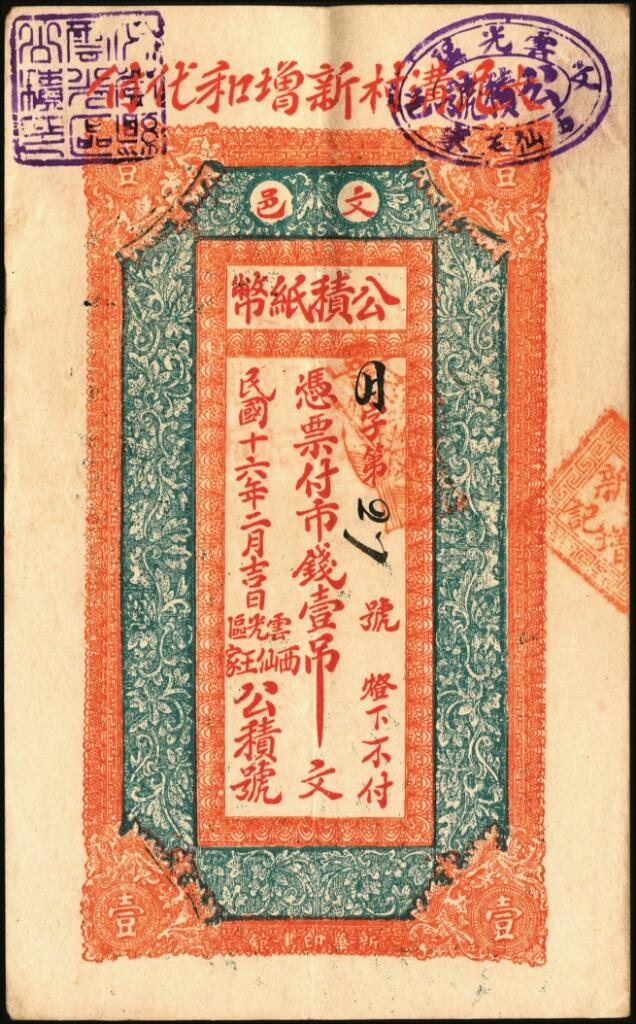 村新增和代付
文邑
公積紙幣
月字第27號 燈下不付
憑票付市錢壹吊文
民國十六年二月吉日
雲光區
西仙王家
公積號
壹
壹
壹
壹
新增記
文雲光區